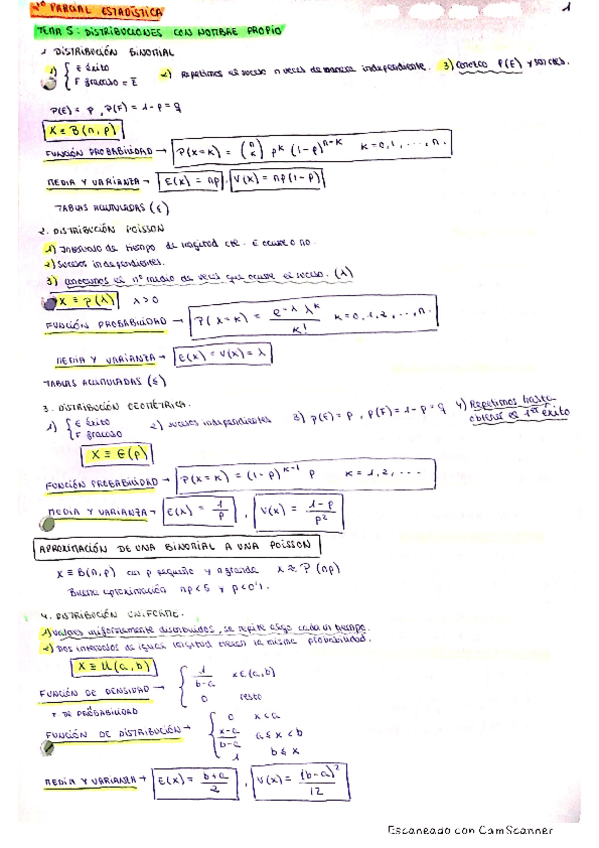 2º PARCIAL ESTADÍSTICA
1
TEMA 5: DISTRIBUCIONES CON NOMBRE PROPIO
1. DISTRIBUCIÓN BINOMIAL
1) { E éxito
F fracaso = E̅
2) Repetimos el suceso n veces de manera independiente. 3) Conozco P(E) y son ctes.
P(E) = p, P(F) = 1-p = q
X ≡ B(n, p)
FUNCIÓN PROBABILIDAD → P(X=K) = (n K) p^K (1-p)^{n-K} K=0,1, ..., n.
MEDIA Y VARIANZA → E(X) = np, V(X) = np(1-p)
TABLAS ACUMULADAS (≤)
2. DISTRIBUCIÓN POISSON
1) Intervalo de tiempo de longitud cte. E ocurre o no.
2) Sucesos independientes.
3) conocemos el nº medio de veces que ocurre el suceso. (λ)
X ≡ P(λ) λ>0
FUNCIÓN PROBABILIDAD → P(X=K) = e^{-λ} λ^K / K! K=0,1,2, ..., n.
MEDIA Y VARIANZA → E(X) = V(X) = λ
TABLAS ACUMULADAS (≤)
3. DISTRIBUCIÓN GEOMÉTRICA.
1) { E éxito
F fracaso
2) sucesos independientes 3) P(E) = p, P(F) = 1-p = q 4) Repetimos hasta
obtener el 1er éxito
X ≡ G(p)
FUNCIÓN PROBABILIDAD → P(X=K) = (1-p)^{K-1} p K=1,2, ...
MEDIA Y VARIANZA → E(X) = 1/p, V(X) = 1-p / p²
APROXIMACIÓN DE UNA BINOMIAL A UNA POISSON
X ≡ B(n,p) con p pequeño y n grande X ≈ P(np)
Buena aproximación np<5 y p<0'1.
4. DISTRIBUCIÓN UNIFORME.
1) Valores uniformemente distribuidos, se repite algo cada un tiempo.
2) Dos intervalos de igual longitud tienen la misma probabilidad.
X ≡ U(a,b)
FUNCIÓN DE DENSIDAD → { 1/b-a x∈(a,b)
0 resto
DE PROBABILIDAD
FUNCIÓN DE DISTRIBUCIÓN → { 0 x<a
x-a/b-a a≤x<b
1 b≤x
MEDIA Y VARIANZA → E(X) = b+a/2, V(X) = (b-a)²/12
Escaneado con CamScanner